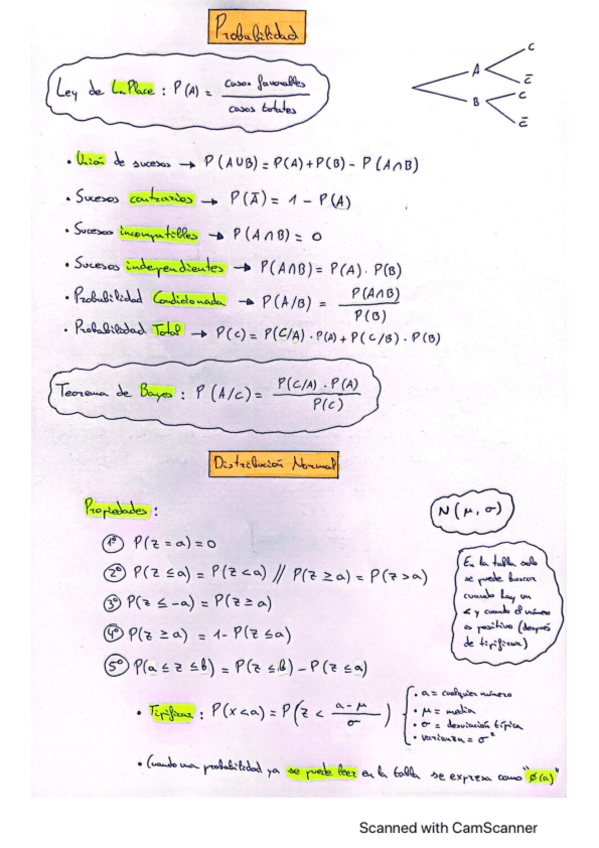 Probabilidad
Ley de LaPlace : P(A) = casos favorables / casos totales
A
B
C
C̅
C
C̅
• Unión de sucesos → P(A∪B) = P(A)+P(B) - P(A∩B)
• Sucesos contrarios → P(A̅) = 1 - P(A)
• Sucesos incompatibles → P(A∩B) = 0
• Sucesos independientes → P(A∩B) = P(A) · P(B)
• Probabilidad Condicionada → P(A/B) = P(A∩B) / P(B)
• Probabilidad Total → P(C) = P(C/A) · P(A) + P(C/B) · P(B)
Teorema de Bayes : P(A/C) = P(C/A) · P(A) / P(C)
Distribución Normal
Propiedades :
N(μ, σ)
1º P(Z = a) = 0
2º P(Z ≤ a) = P(Z < a) // P(Z ≥ a) = P(Z > a)
3º P(Z ≤ -a) = P(Z ≥ a)
4º P(Z ≥ a) = 1 - P(Z ≤ a)
5º P(a ≤ Z ≤ b) = P(Z ≤ b) - P(Z ≤ a)
En la tabla solo
se puede buscar
cuando hay un
< y cuando el número
es positivo (después
de tipificar)
• Tipificar : P(x < a) = P(Z < a - μ / σ)
• a = cualquier número
• μ = media
• σ = desviación típica
• varianza = σ²
• Cuando una probabilidad ya se puede leer en la tabla se expresa como "ϕ(a)"
Scanned with CamScanner